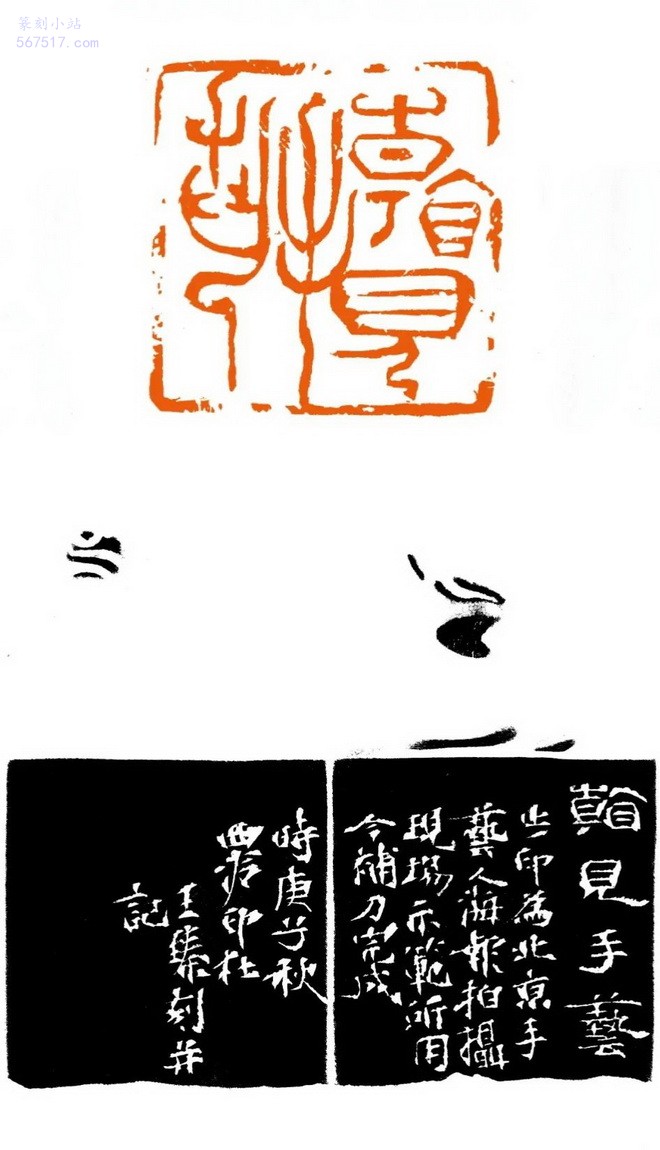 篆刻小站
567517.com
見
手藝
見手藝
此印為北京手
藝人海報拍攝
現場示範所用
今補刀完成
時庚子秋
西泠印社
王臻刻并
記